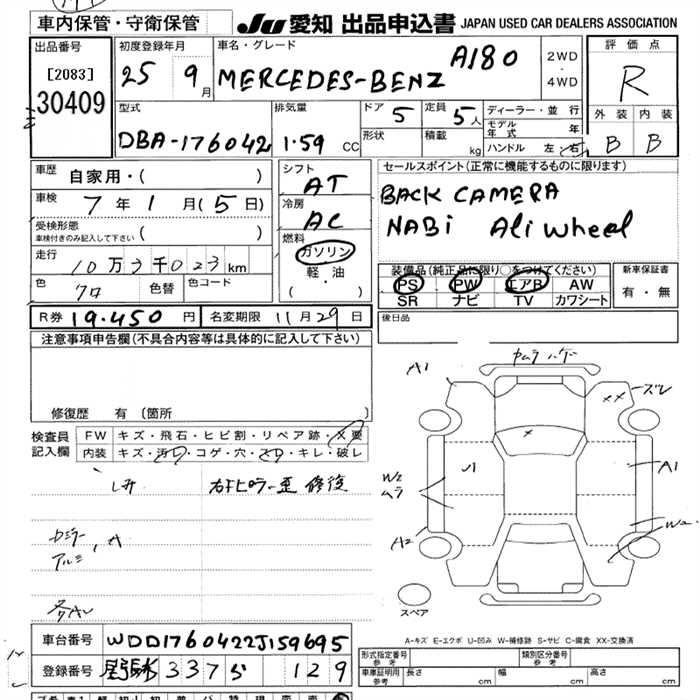 車内保管・守衛保管
JU 愛知 出品申込書 JAPAN USED CAR DEALERS ASSOCIATION
出品番号
[2083]
30409
初度登録年月
25 9月
車名・グレード
MERCEDES-BENZ A180
2WD
・
4WD
評価点
R
外装 内装
B B
型式
DBA-176042
排気量
1.59 CC
ドア 5
定員 5人
形状
積載 kg
ディーラー・並行
モデル年式 年
ハンドル 左・右
車歴
自家用・( )
車検
7年1月(5日)
受検形態
車検付きのみ記入して下さい ( )
走行
10万3千023km
色
クロ
色替
色コード
シフト
AT
冷房
AC
燃料
ガソリン
軽・油
( ・ )
セールスポイント(正常に機能するものに限ります)
BACK CAMERA
NABi Ali wheel
装備品(純正品に限り○をつけてください)
PS PW エアB AW
SR ナビ TV カワシート
新車保証書
有・無
R券 19.450 円
名変期限 11月29日
後日品
注意事項申告欄(不具合内容等は具体的に記入して下さい)
修復歴 有 (箇所 )
検査員記入欄
FW キズ・飛石・ヒビ割・リペア跡・X要
内装 キズ・汚レ・コゲ・穴・スレ・キレ・破レ
右Fピラー歪 修復
アルミ
A1
ズレ
XX
X
A1
W2
ムラ
A2
W2
スペア
A-キズ E-エクボ U-凹み W-補修跡 S-サビ C-腐食 XX-交換済
車台番号 WDD1760422J159695
登録番号 337 129
形式指定番号 参考
類別区分番号 参考
車庫証明用 参考
長さ cm
幅 cm
高さ cm